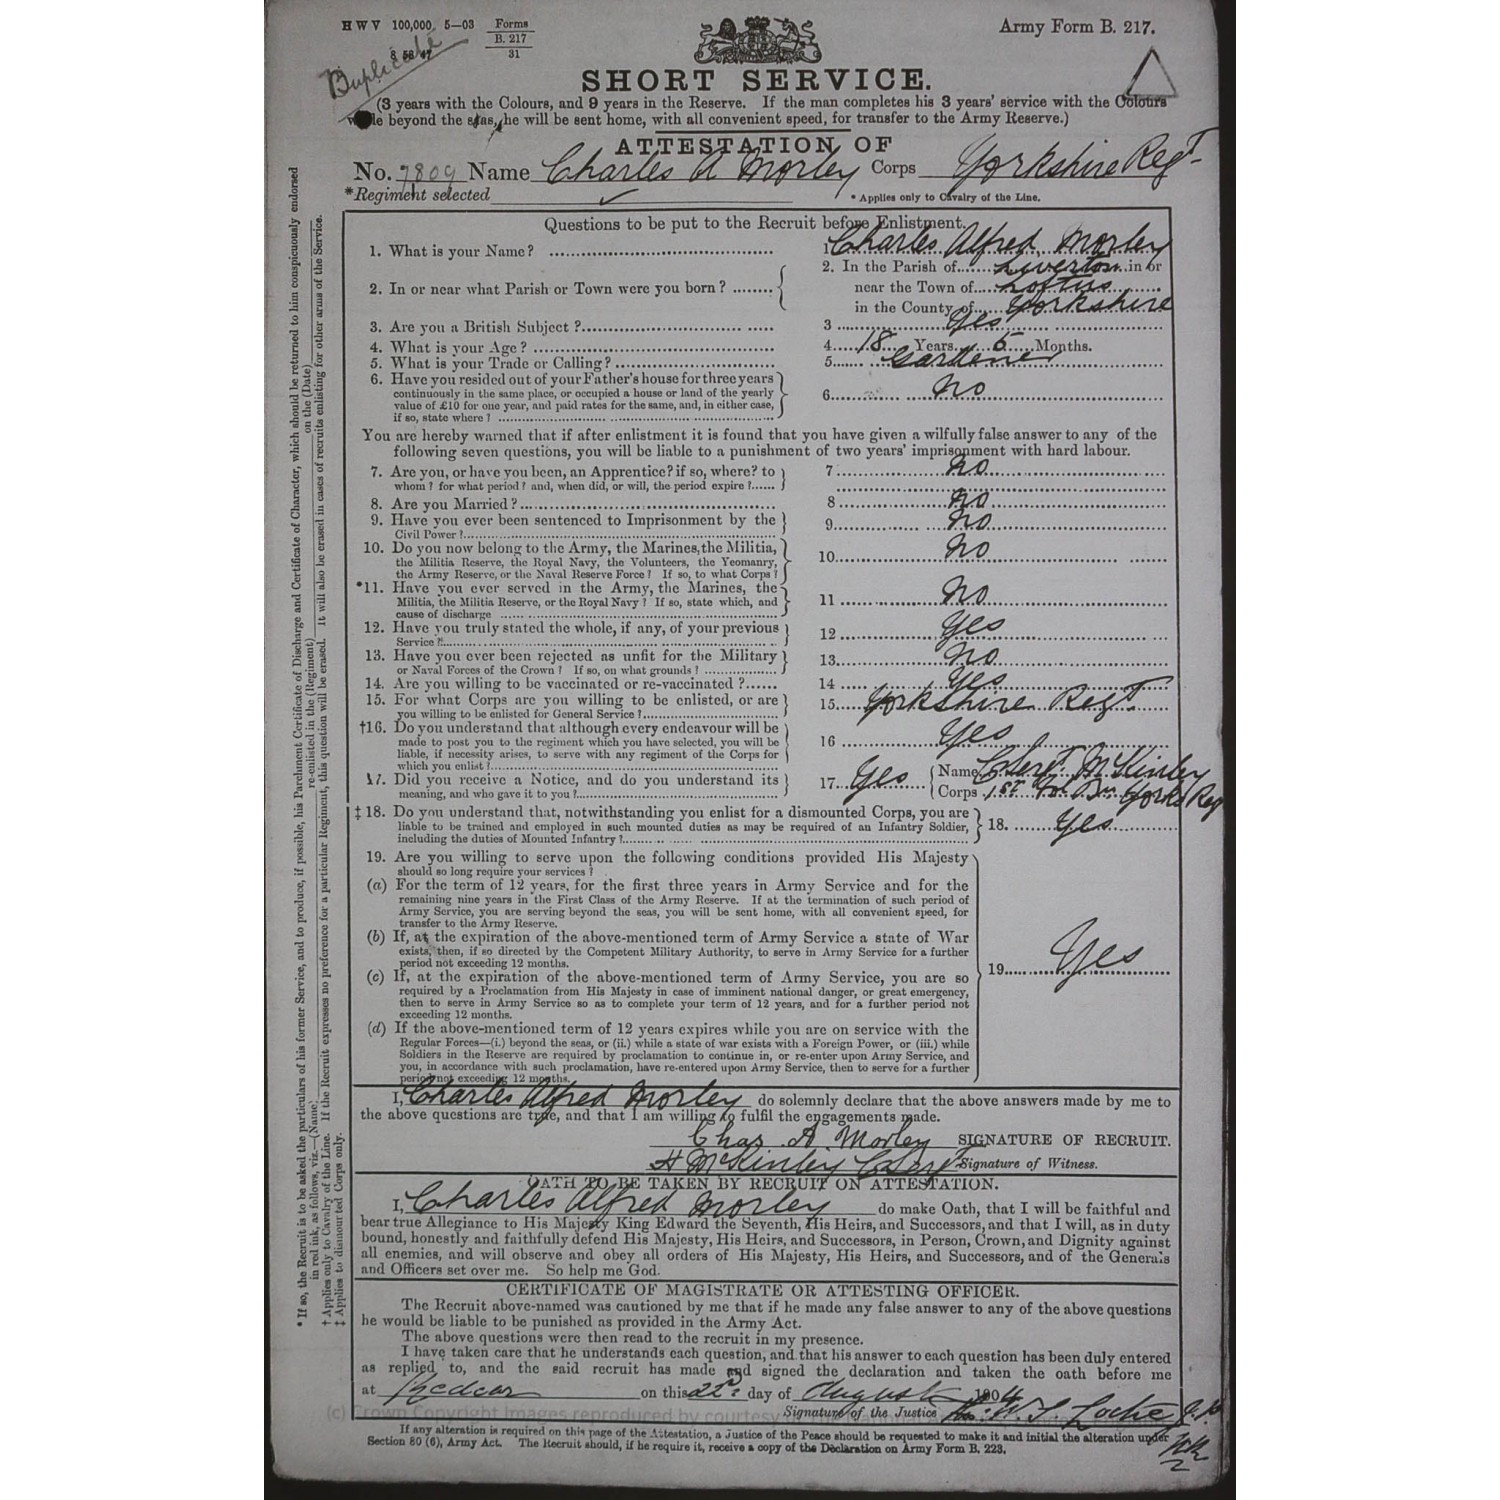 H W V 100,000 5—03 Forms B. 217 31
Army Form B. 217.
Duplicate
SHORT SERVICE.
(3 years with the Colours, and 9 years in the Reserve. If the man completes his 3 years' service with the Colours
while beyond the seas, he will be sent home, with all convenient speed, for transfer to the Army Reserve.)
ATTESTATION OF
No. 7809 Name Charles A Morley Corps Yorkshire Regt
*Regiment selected
* Applies only to Cavalry of the Line.
Questions to be put to the Recruit before Enlistment.
1. What is your Name? 1 Charles Alfred Morley
2. In or near what Parish or Town were you born? 2. In the Parish of Liverton in or
near the Town of Loftus
in the County of Yorkshire
3. Are you a British Subject? 3 Yes
4. What is your Age? 4 18 Years 5 Months.
5. What is your Trade or Calling? 5 Gardener
6. Have you resided out of your Father's house for three years
continuously in the same place, or occupied a house or land of the yearly
value of £10 for one year, and paid rates for the same, and, in either case,
if so, state where? 6 No
You are hereby warned that if after enlistment it is found that you have given a wilfully false answer to any of the
following seven questions, you will be liable to a punishment of two years' imprisonment with hard labour.
7. Are you, or have you been, an Apprentice? if so, where? to
whom? for what period? and, when did, or will, the period expire? 7 No
8. Are you Married? 8 No
9. Have you ever been sentenced to Imprisonment by the
Civil Power? 9 No
10. Do you now belong to the Army, the Marines, the Militia,
the Militia Reserve, the Royal Navy, the Volunteers, the Yeomanry,
the Army Reserve, or the Naval Reserve Force? If so, to what Corps? 10 No
*11. Have you ever served in the Army, the Marines, the
Militia, the Militia Reserve, or the Royal Navy? If so, state which, and
cause of discharge 11 No
12. Have you truly stated the whole, if any, of your previous
Service? 12 Yes
13. Have you ever been rejected as unfit for the Military
or Naval Forces of the Crown? If so, on what grounds? 13 No
14. Are you willing to be vaccinated or re-vaccinated? 14 Yes
15. For what Corps are you willing to be enlisted, or are
you willing to be enlisted for General Service? 15 Yorkshire Regt.
†16. Do you understand that although every endeavour will be
made to post you to the regiment which you have selected, you will be
liable, if necessity arises, to serve with any regiment of the Corps for
which you enlist? 16 Yes
17. Did you receive a Notice, and do you understand its
meaning, and who gave it to you? 17. Yes Name C Serjt McKinley
Corps 1st Vol Bn Yorks Reg
‡18. Do you understand that, notwithstanding you enlist for a dismounted Corps, you are
liable to be trained and employed in such mounted duties as may be required of an Infantry Soldier,
including the duties of Mounted Infantry? 18. Yes
19. Are you willing to serve upon the following conditions provided His Majesty
should so long require your services?
(a) For the term of 12 years, for the first three years in Army Service and for the
remaining nine years in the First Class of the Army Reserve. If at the termination of such period of
Army Service, you are serving beyond the seas, you will be sent home, with all convenient speed, for
transfer to the Army Reserve.
(b) If, at the expiration of the above-mentioned term of Army Service a state of War
exists, then, if so directed by the Competent Military Authority, to serve in Army Service for a further
period not exceeding 12 months. 19. Yes
(c) If, at the expiration of the above-mentioned term of Army Service, you are so
required by a Proclamation from His Majesty in case of imminent national danger, or great emergency,
then to serve in Army Service so as to complete your term of 12 years, and for a further period not
exceeding 12 months.
(d) If the above-mentioned term of 12 years expires while you are on service with the
Regular Forces—(i.) beyond the seas, or (ii.) while a state of war exists with a Foreign Power, or (iii.) while
Soldiers in the Reserve are required by proclamation to continue in, or re-enter upon Army Service, and
you, in accordance with such proclamation, have re-entered upon Army Service, then to serve for a further
period not exceeding 12 months.
I, Charles Alfred Morley do solemnly declare that the above answers made by me to
the above questions are true, and that I am willing to fulfil the engagements made.
Chas A Morley SIGNATURE OF RECRUIT.
H McKinley C Serjt Signature of Witness.
OATH TO BE TAKEN BY RECRUIT ON ATTESTATION.
I, Charles Alfred Morley do make Oath, that I will be faithful and
bear true Allegiance to His Majesty King Edward the Seventh, His Heirs, and Successors, and that I will, as in duty
bound, honestly and faithfully defend His Majesty, His Heirs, and Successors, in Person, Crown, and Dignity against
all enemies, and will observe and obey all orders of His Majesty, His Heirs, and Successors, and of the Generals
and Officers set over me. So help me God.
CERTIFICATE OF MAGISTRATE OR ATTESTING OFFICER.
The Recruit above-named was cautioned by me that if he made any false answer to any of the above questions
he would be liable to be punished as provided in the Army Act.
The above questions were then read to the recruit in my presence.
I have taken care that he understands each question, and that his answer to each question has been duly entered
as replied to, and the said recruit has made and signed the declaration and taken the oath before me
at Redcar on this 22nd day of August 1904
(c) Crown Copyright Images reproduced by courtesy
Signature of the Justice W. S. Locke J.P.
If any alteration is required on this page of the Attestation, a Justice of the Peace should be requested to make it and initial the alteration under
Section 80 (6), Army Act. The Recruit should, if he require it, receive a copy of the Declaration on Army Form B. 223.
* If so, the Recruit is to be asked the particulars of his former Service, and to produce, if possible, his Parchment Certificate of Discharge and Certificate of Character, which should be returned to him conspicuously endorsed
in red ink, as follows, viz.—(Name) re-enlisted in the (Regiment) on the (Date)
† Applies only to Cavalry of the Line. If the Recruit expresses no preference for a particular Regiment, this question will be erased. It will also be erased in cases of recruits enlisting for other arms of the Service.
‡ Applies to dismounted Corps only.